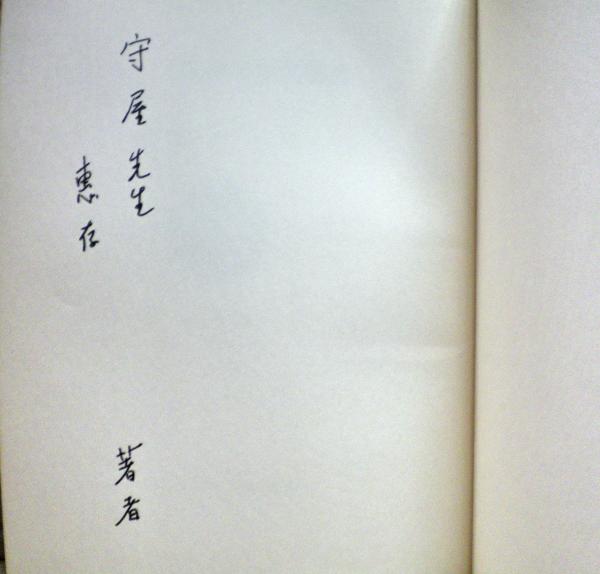 守屋先生
惠存
著者